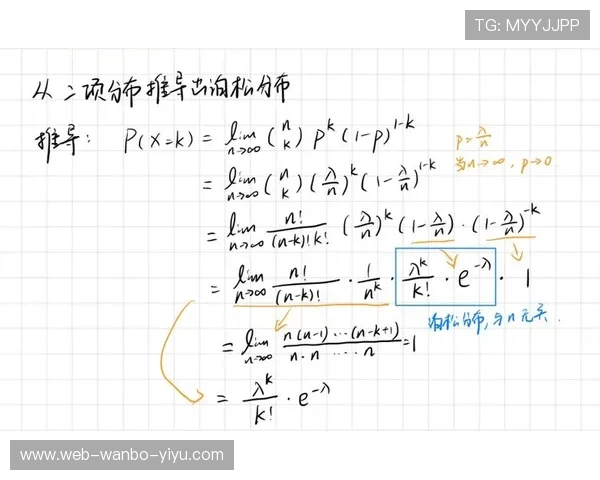 TG: MYYJJPP
从二项分布推导出泊松分布
推导: P(X=k) = lim n→∞ (n k) p^k (1-p)^{1-k}
p = λ/n
当n→∞, p→0.
= lim n→∞ (n k) (λ/n)^k (1-λ/n)^{1-k}
= lim n→∞ n!/((n-k)!k!) (λ/n)^k (1-λ/n)·(1-λ/n)^{-k}
= lim n→∞ n!/(n-k)! · 1/n^k · λ^k/k! · e^{-λ} · 1
泊松分布,与n无关.
= lim n→∞ n(n-1)···(n-k+1)/n·n····n = 1
= λ^k/k! · e^{-λ}
www-web-wanbo-yiyu.com